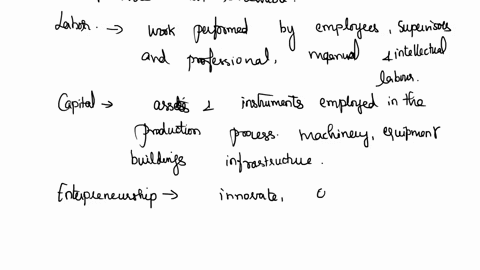 Labor. → work performed by employees, supervisors
and professional, manual & intellectual
labour.
Capital → assets & instruments employed in the
production process. machinery, equipment
buildings infrastructure.
Entrepreneurship → innovate,